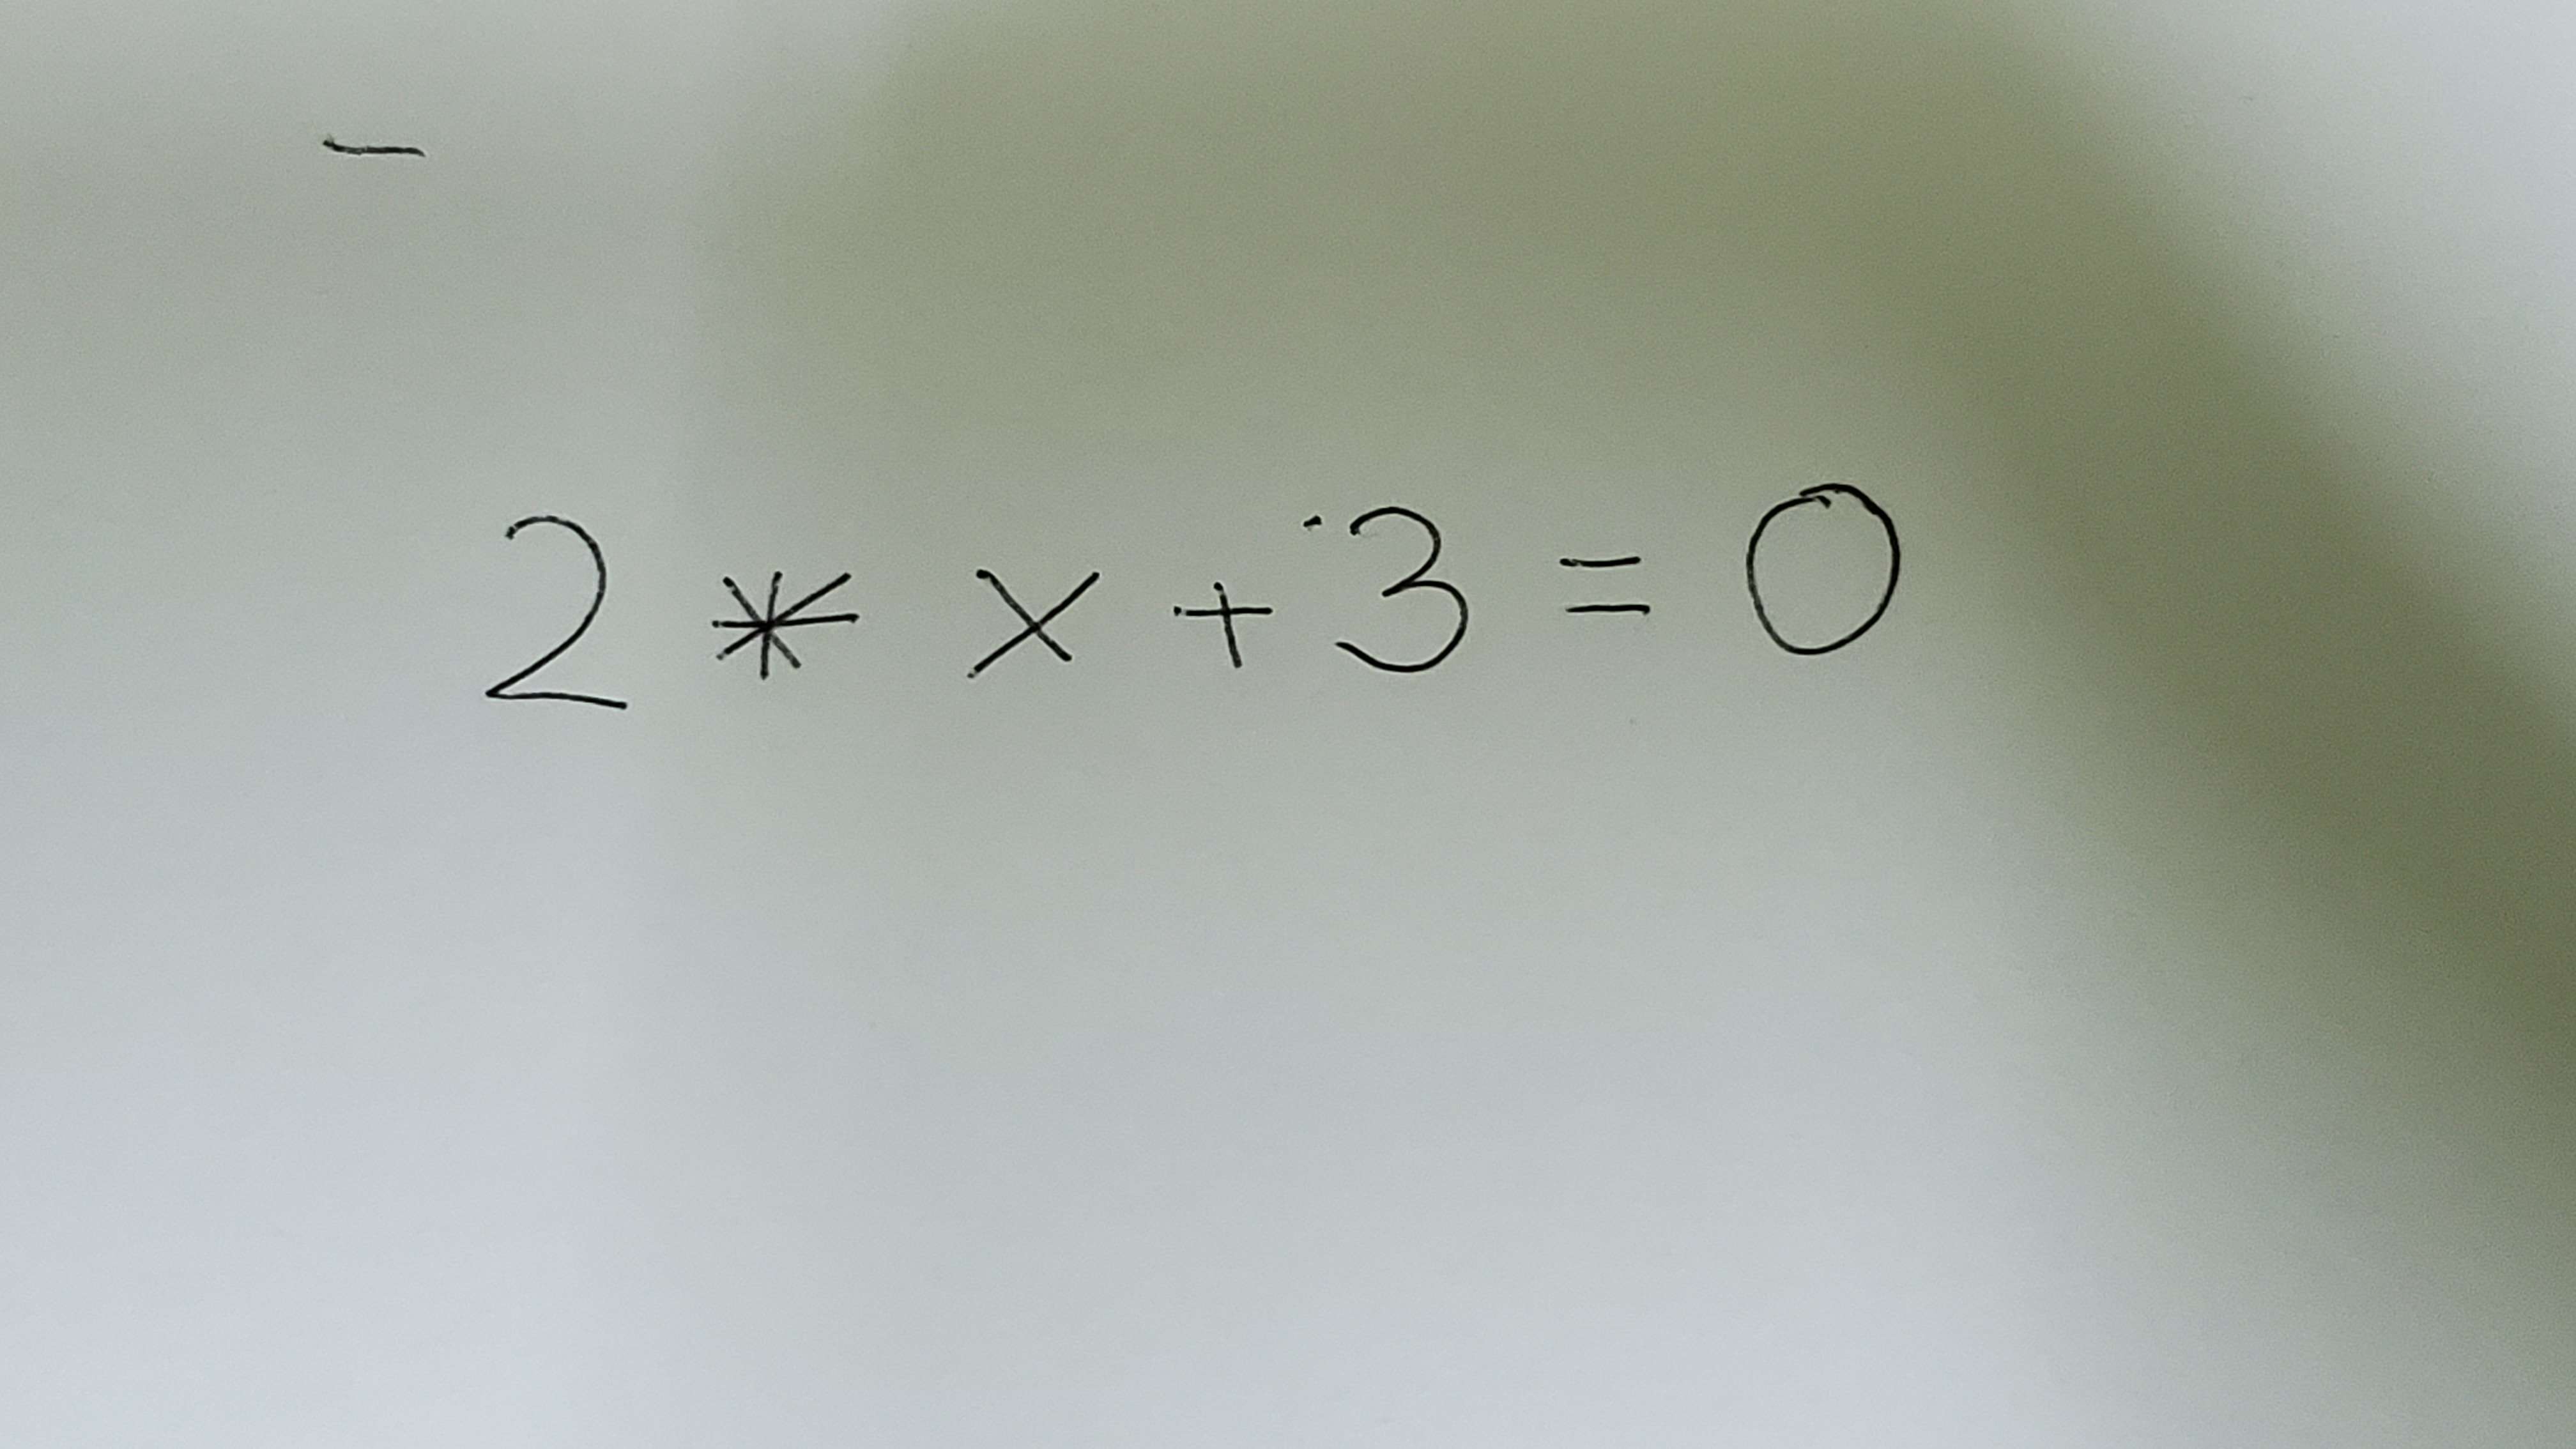 -
2 * x + 3 = 0